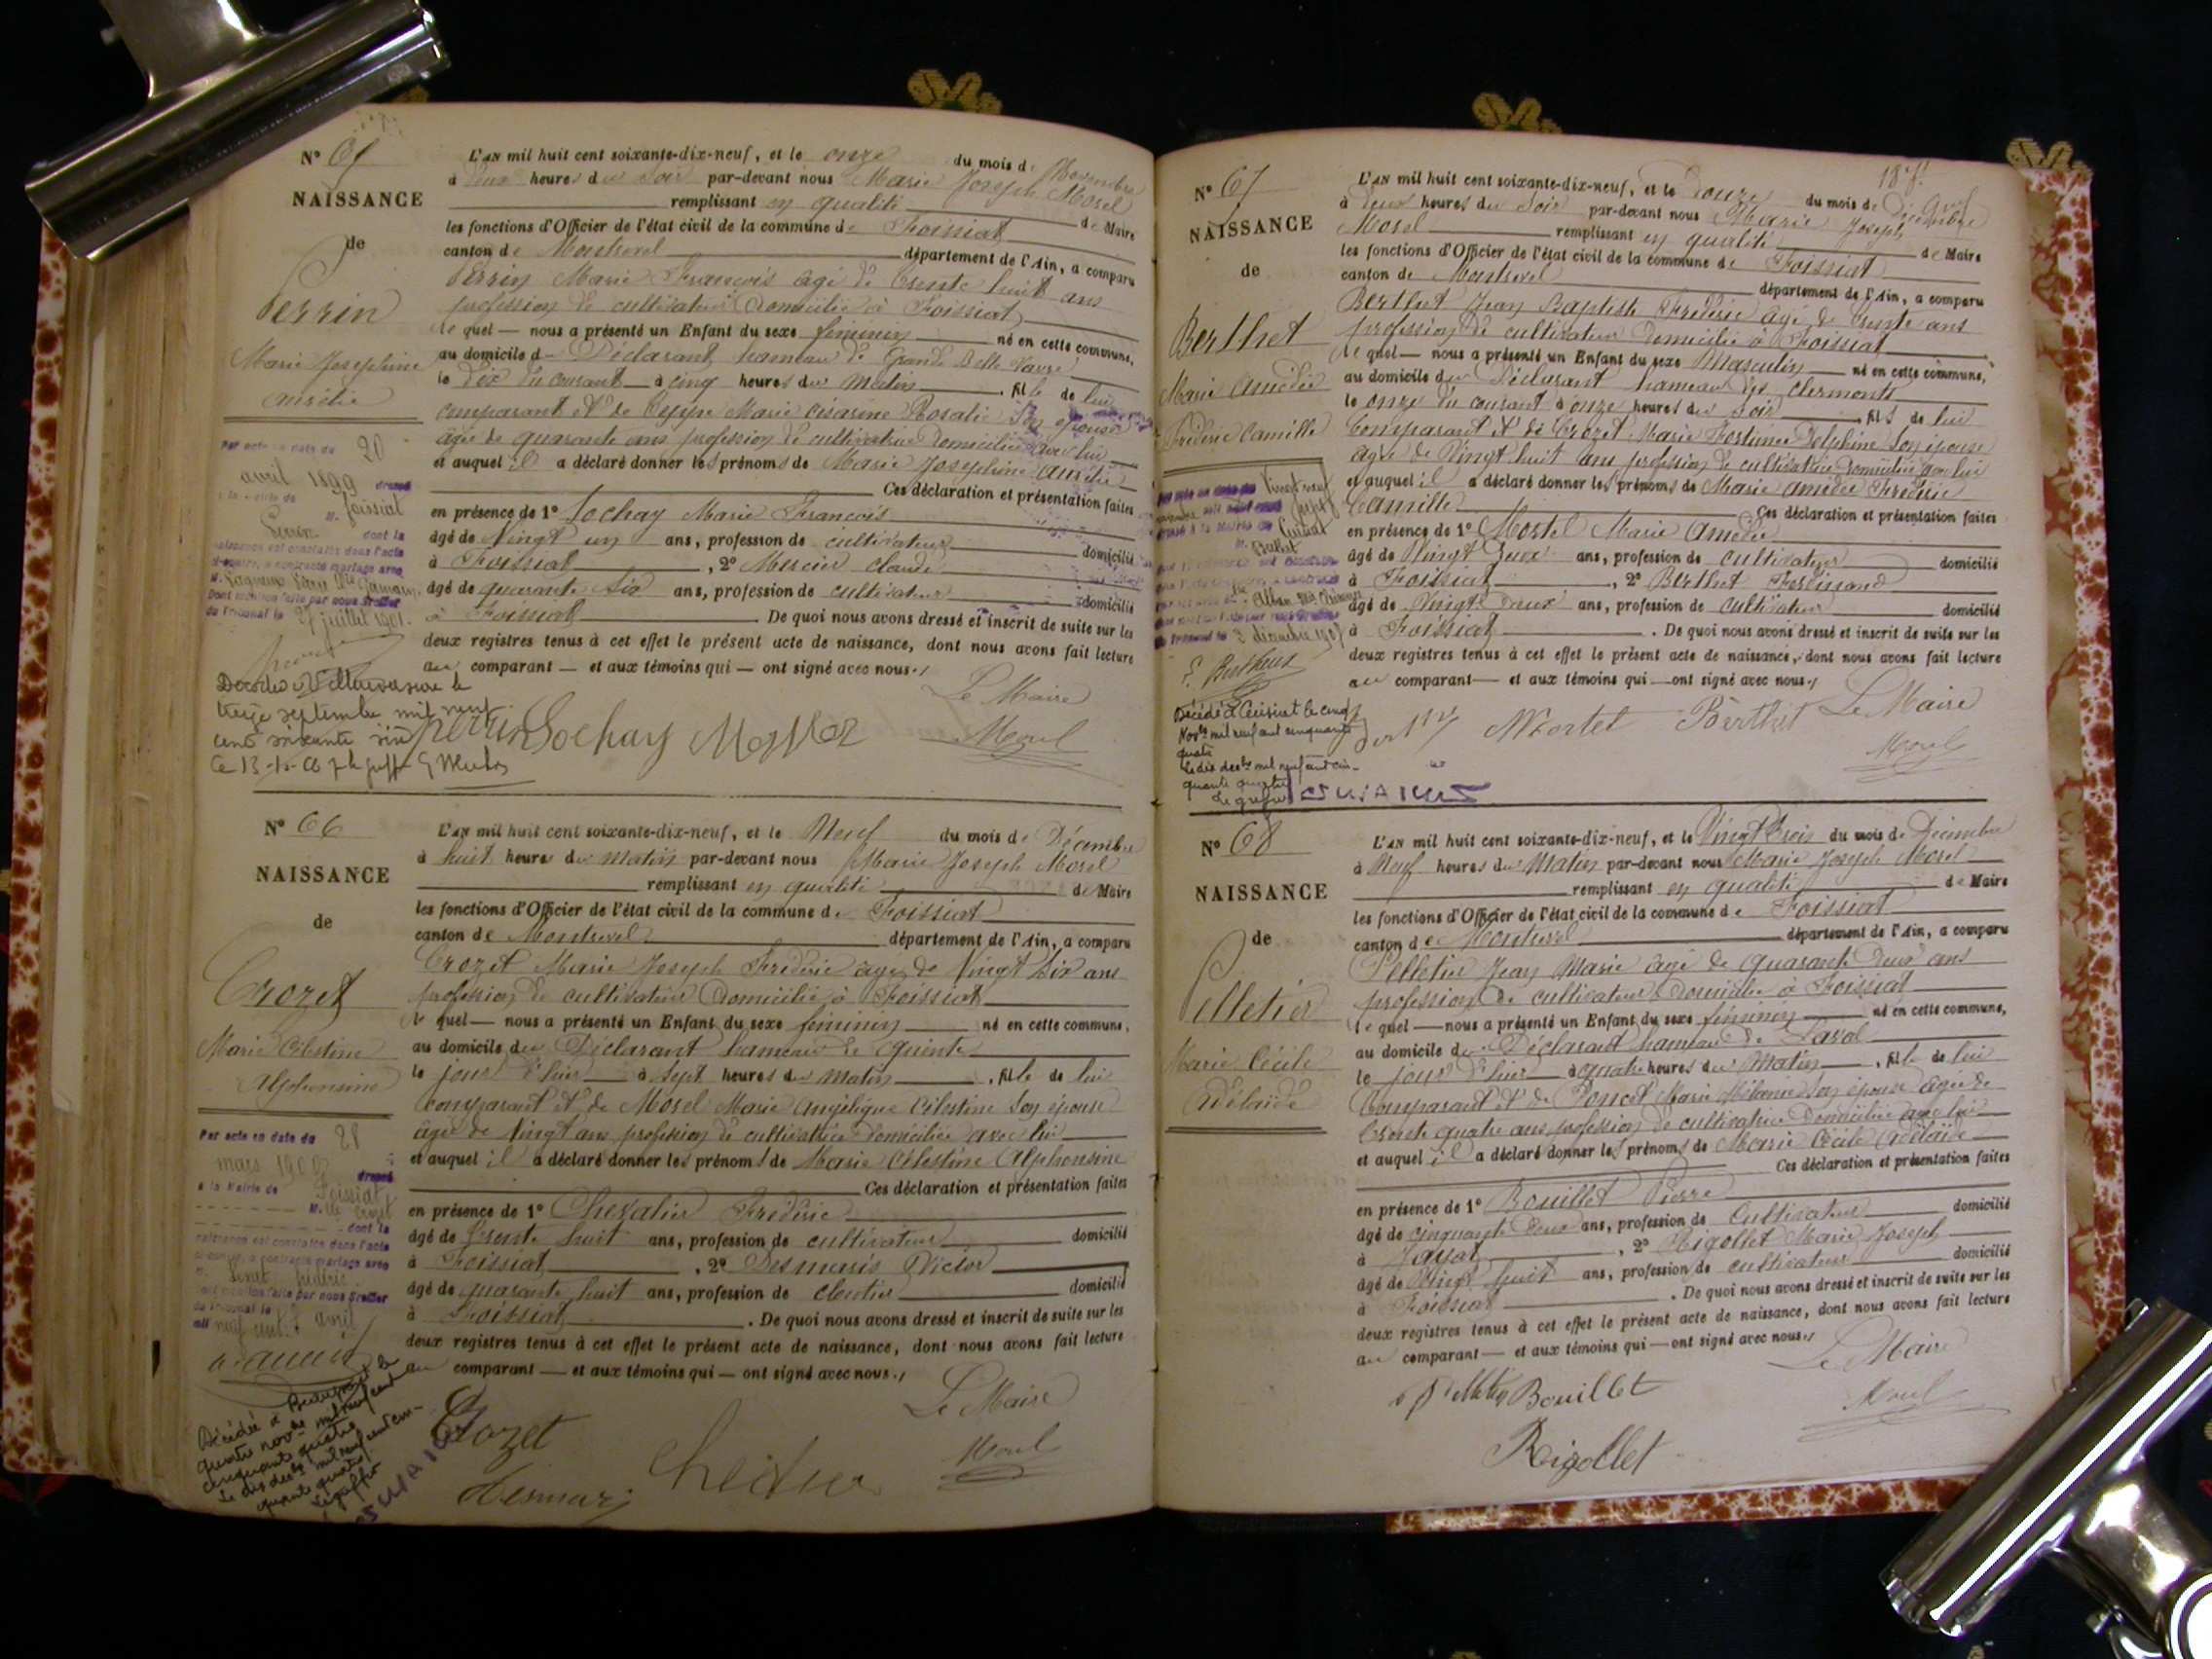 N° 65
NAISSANCE
de
Perrin
Marie Joséphine
Aurélie
L'AN mil huit cent soixante-dix-neuf, et le onze du mois de Novembre
à deux heures du soir par-devant nous Marie Joseph Morel
remplissant en qualité de Maire
les fonctions d'Officier de l'état civil de la commune de Foissiat
canton de Montrevel département de l'Ain, a comparu
Perrin Marie François âgé de trente huit ans
profession de cultivateur domicilié à Foissiat
lequel nous a présenté un Enfant du sexe féminin né en cette commune,
au domicile du Déclarant hameau de Grande Belle Vavre
le dix du courant à cinq heures du matin, fille de lui
comparant et de Marie Césarine Rosalie son épouse
âgée de quarante ans profession de cultivatrice domiciliée avec lui
et auquel il a déclaré donner les prénoms de Marie Joséphine Aurélie
Ces déclaration et présentation faites
en présence de 1° Sochay Marie François
âgé de vingt un ans, profession de cultivateur domicilié
à Foissiat, 2° Mercier Claude
âgé de quarante six ans, profession de cultivateur domicilié
à Foissiat. De quoi nous avons dressé et inscrit de suite sur les
deux registres tenus à cet effet le présent acte de naissance, dont nous avons fait lecture
au comparant et aux témoins qui ont signé avec nous.
Le Maire
Perrin Sochay
Morel
Par acte en date du 20
avril 1899 dressé
à la Mairie de Foissiat
dont la
naissance est constatée dans l'acte
ci-contre, a contracté mariage avec
Dont mention faite par nous Greffier
du Tribunal le 27 juillet 1901.
Décédée à Villemoisson le
treize septembre mil neuf
cent soixante six
N° 66
NAISSANCE
de
Crozet
Marie Célestine
Alphonsine
L'AN mil huit cent soixante-dix-neuf, et le Neuf du mois de Décembre
à huit heures du matin par-devant nous Marie Joseph Morel
remplissant en qualité de Maire
les fonctions d'Officier de l'état civil de la commune de Foissiat
canton de Montrevel département de l'Ain, a comparu
Crozet Marie Joseph Frédéric âgé de vingt six ans
profession de cultivateur domicilié à Foissiat
lequel nous a présenté un Enfant du sexe féminin né en cette commune,
au domicile du Déclarant hameau de Quinte
le jour d'hier à sept heures du matin, fille de lui
comparant et de Morel Marie Angélique Célestine son épouse
âgée de vingt ans profession de cultivatrice domiciliée avec lui
et auquel il a déclaré donner les prénoms de Marie Célestine Alphonsine
Ces déclaration et présentation faites
en présence de 1° Chevalier Frédéric
âgé de trente huit ans, profession de cultivateur domicilié
à Foissiat, 2° Desmaris Victor
âgé de quarante huit ans, profession de cloutier domicilié
à Foissiat. De quoi nous avons dressé et inscrit de suite sur les
deux registres tenus à cet effet le présent acte de naissance, dont nous avons fait lecture
au comparant et aux témoins qui ont signé avec nous.
Le Maire
Crozet
Morel
Desmaris
Par acte en date du 28
mars dressé
à la Mairie de Foissiat
dont la
naissance est constatée dans l'acte
ci-contre, a contracté mariage avec
Dont mention faite par nous Greffier
du Tribunal le
avril
Décédée à Beaupont le
quatre novbre mil neuf cent
cinquante quatre
Le dix décbre mil neuf cent cin-
quante quatre
Le greffier
N° 67
NAISSANCE
de
Berthet
Marie Amédée
Frédéric Camille
L'AN mil huit cent soixante-dix-neuf, et le douze du mois de Décembre
à deux heures du soir par-devant nous Marie Joseph
Morel remplissant en qualité de Maire
les fonctions d'Officier de l'état civil de la commune de Foissiat
canton de Montrevel département de l'Ain, a comparu
Berthet Jean Baptiste Frédéric âgé de trente ans
profession de cultivateur domicilié à Foissiat
lequel nous a présenté un Enfant du sexe Masculin né en cette commune,
au domicile du Déclarant hameau des Clermonts
le onze du courant à onze heures du soir, fils de lui
comparant et de Crozet Marie Fortunée Delphine son épouse
âgée de vingt huit ans profession de cultivatrice domiciliée avec lui
et auquel il a déclaré donner les prénoms de Marie Amédée Frédéric
Camille Ces déclaration et présentation faites
en présence de 1° Mortel Marie Amédée
âgé de vingt deux ans, profession de cultivateur domicilié
à Foissiat, 2° Berthet Ferdinand
âgé de vingt deux ans, profession de cultivateur domicilié
à Foissiat. De quoi nous avons dressé et inscrit de suite sur les
deux registres tenus à cet effet le présent acte de naissance, dont nous avons fait lecture
au comparant et aux témoins qui ont signé avec nous.
Mortel Berthet Le Maire
Morel
Décédé à Cuisiat le cinq
Novbre mil neuf cent cinquante
quatre
Le dix décbre mil neuf cent cin-
quante quatre
Le greffier
N° 68
NAISSANCE
de
Pelletier
Marie Cécile
Adélaïde
L'AN mil huit cent soixante-dix-neuf, et le Vingt trois du mois de Décembre
à Neuf heures du Matin par-devant nous Marie Joseph Morel
remplissant en qualité de Maire
les fonctions d'Officier de l'état civil de la commune de Foissiat
canton de Montrevel département de l'Ain, a comparu
Pelletier Jean Marie âgé de quarante deux ans
profession de cultivateur domicilié à Foissiat
lequel nous a présenté un Enfant du sexe féminin né en cette commune,
au domicile du Déclarant hameau de Laval
le jour d'hier à quatre heures du Matin, fille de lui
comparant et de Poncet Marie Mélanie son épouse âgée de
trente quatre ans profession de cultivatrice domiciliée avec lui
et auquel il a déclaré donner les prénoms de Marie Cécile Adélaïde
Ces déclaration et présentation faites
en présence de 1° Bouillet Pierre
âgé de cinquante deux ans, profession de Cultivateur domicilié
à Jayat, 2° Rigollet Marie Joseph
âgé de vingt huit ans, profession de cultivateur domicilié
à Foissiat. De quoi nous avons dressé et inscrit de suite sur les
deux registres tenus à cet effet le présent acte de naissance, dont nous avons fait lecture
au comparant et aux témoins qui ont signé avec nous.
Le Maire
Bouillet
Morel
Rigollet